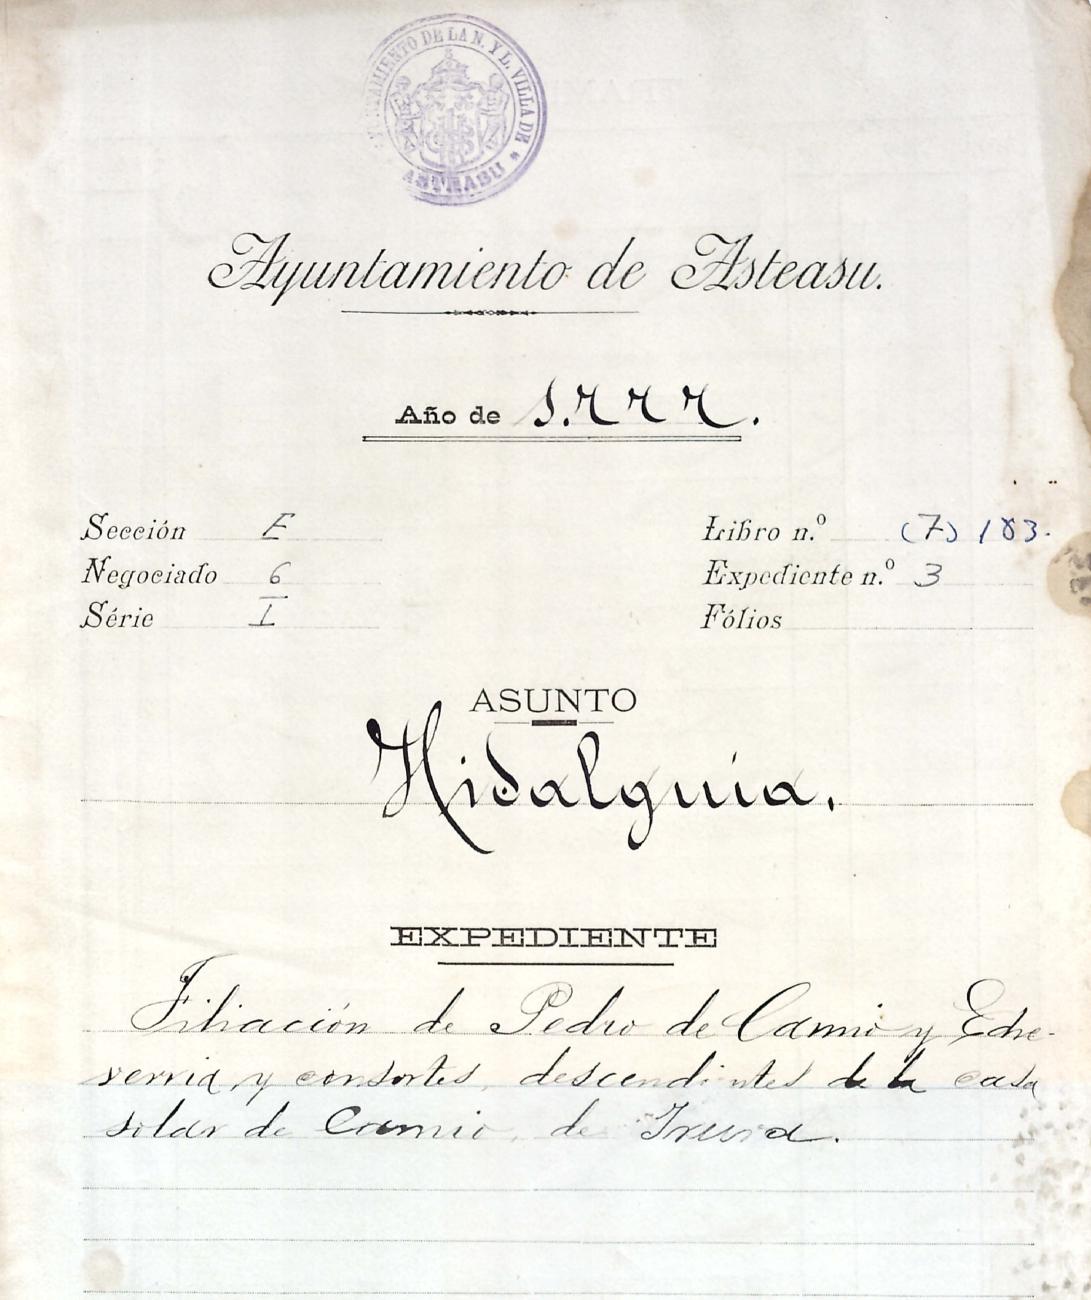 AYUNTAMIENTO DE LA N. Y L. VILLA DE ASTEASU
Ayuntamiento de Asteasu.
Año de 1.777.
Sección E
Libro n.º (7) 183.
Negociado 6
Expediente n.º 3
Série I
Fólios
ASUNTO
Hidalguía.
EXPEDIENTE
Filiación de Pedro de Camio y Eche-
verria, y consortes, descendientes de la casa
solar de Camio, de